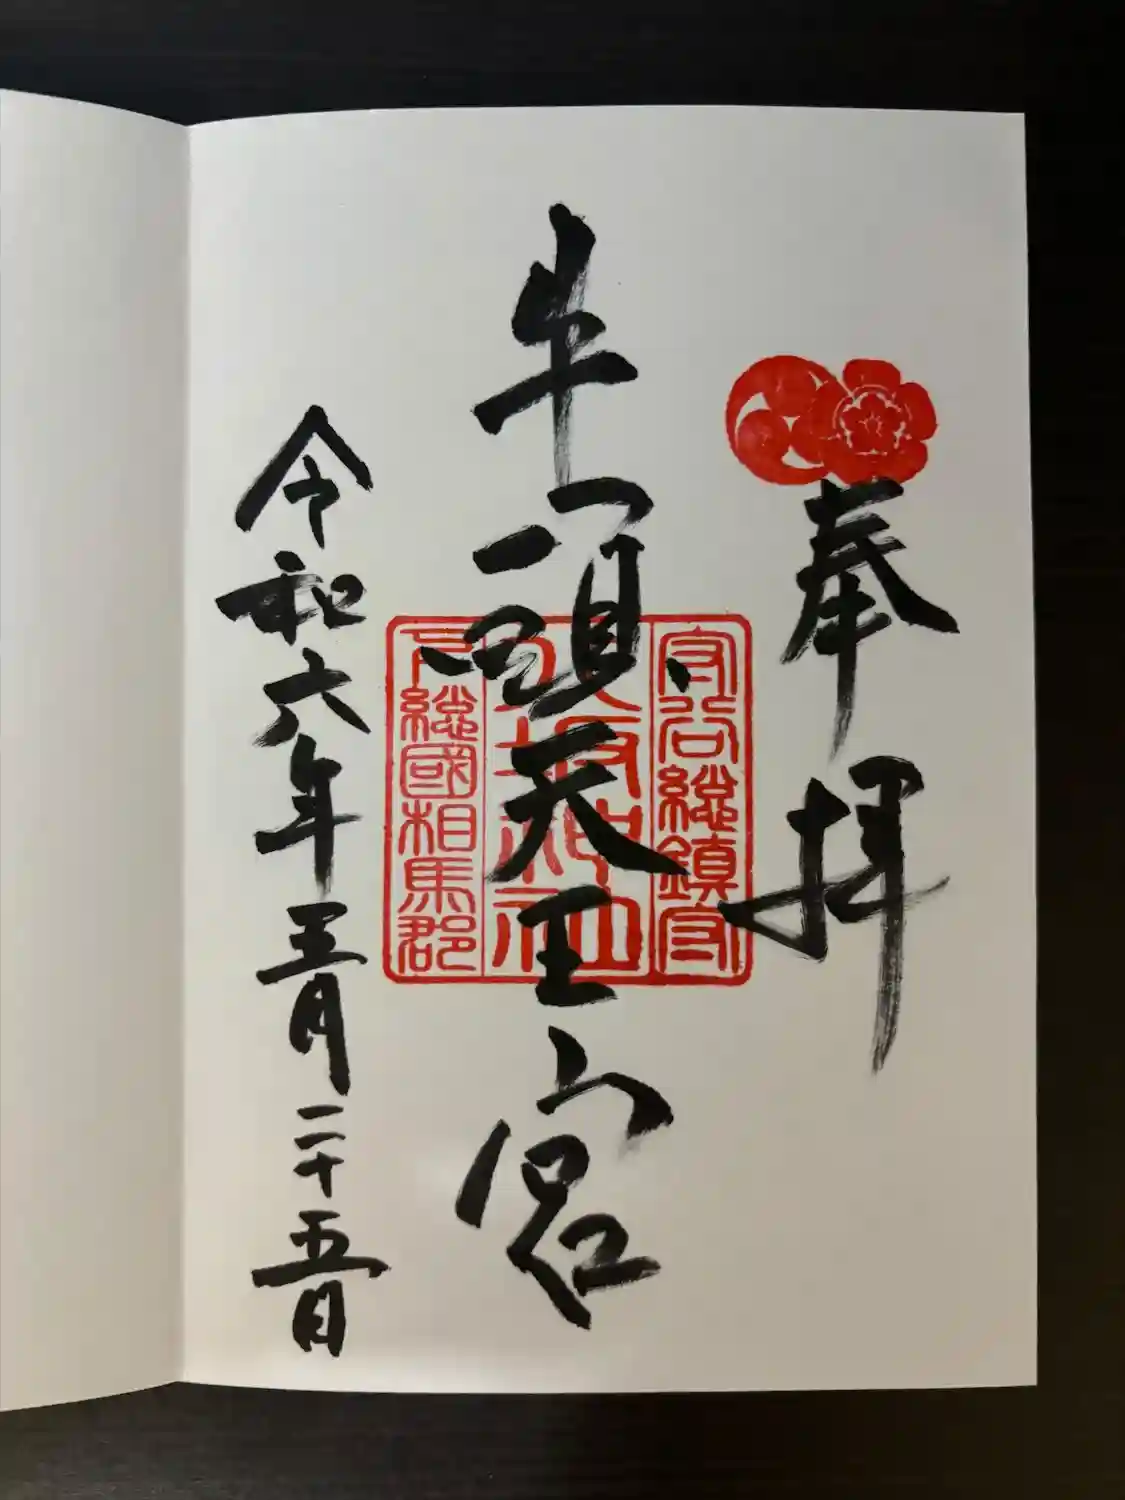 奉拝
牛頭天王宮
守谷総鎮守
八坂神社
下総國相馬郡
令和六年三月二十五日